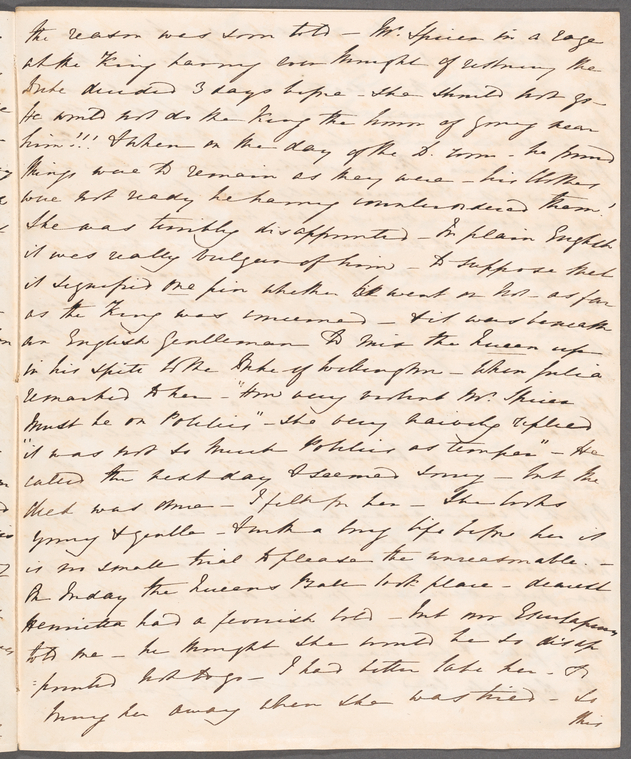 the reason was soon told – Mr. Spicer in a rage
at the King having ever thought of restoring the
Duke decided 3 days before – she should not go
he would not do the King the honor of going near
him!!! & when on the day of the D. room – he found
things were to remain as they were – his Clothes
were not ready he having countermanded them!
She was terribly disappointed – In plain English
it was really vulgar of him – to suppose that
it signified one pin whether He went or not – as far
as the King was concerned – & it was beneath
an English Gentleman to mix the Queen up
in his spite to the Duke of Wellington – When Julia
remarked to her – "How very violent Mr. Spicer
must be on Politics" – she very naively replied
"it was not so much Politics as temper" – He
called the next day & seemed sorry – but the
deed was done – I felt for her – She looks
young & gentle – & with a long life before her it
is no small trial to please the unreasonable. –
On Friday the Queens Ball took place – dearest
Henrietta had a feverish cold – but our
told me – he thought she would be so disap
=pointed not to go – I had better take her – &
bring her away when she was tired – So
this